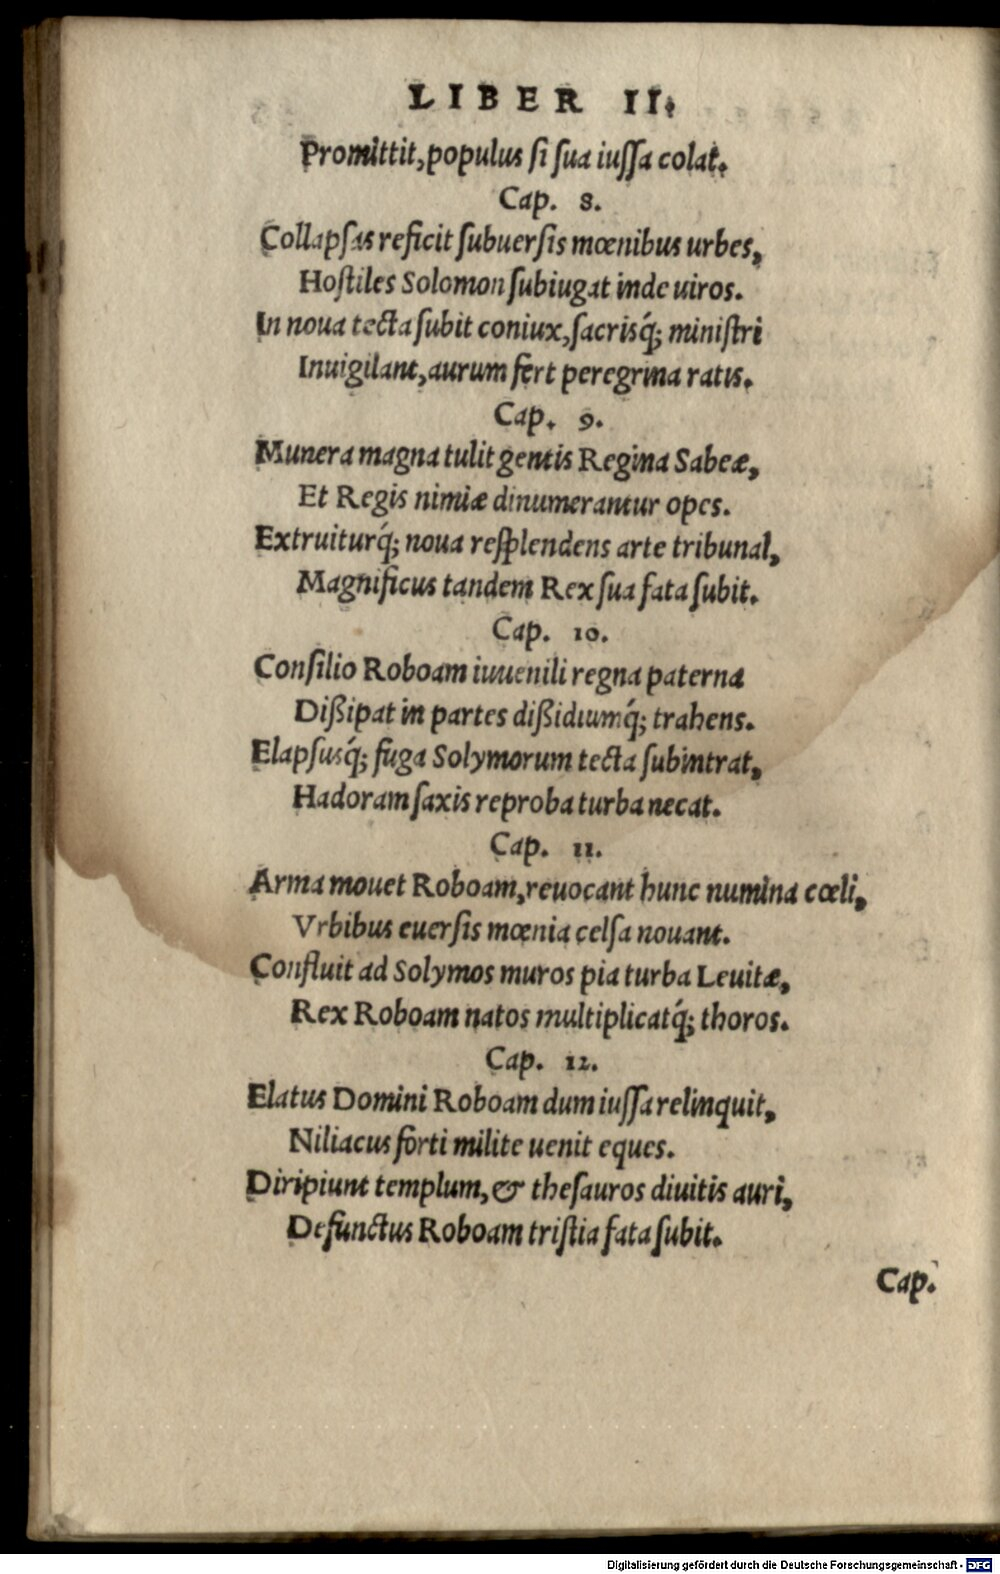 LIBER II.
Promittit, populus ſi ſua iuſſa colat.
Cap. 8.
Collapſas reficit ſubuerſis mœnibus urbes,
Hoſtiles Solomon ſubiugat inde uiros.
In noua tecta ſubit coniux, ſacrisq́; miniſtri
Inuigilant, aurum fert peregrina ratis.
Cap. 9.
Munera magna tulit gentis Regina Sabeæ,
Et Regis nimiæ dinumerantur opes.
Extruiturq́; noua reſplendens arte tribunal,
Magnificus tandem Rex ſua fata ſubit.
Cap. 10.
Conſilio Roboam iuuenili regna paterna
Dißipat in partes dißidiumq́; trahens.
Elapſusq́; fuga Solymorum tecta ſubintrat,
Hadoram ſaxis reproba turba necat.
Cap. 11.
Arma mouet Roboam, reuocant hunc numina cœli,
Vrbibus euerſis mœnia celſa nouant.
Confluit ad Solymos muros pia turba Leuitæ,
Rex Roboam natos multiplicatq́; thoros.
Cap. 12.
Elatus Domini Roboam dum iuſſa relinquit,
Niliacus forti milite uenit eques.
Diripiunt templum, & theſauros diuitis auri,
Defunctus Roboam triſtia fata ſubit.
Cap.
Digitalisierung gefördert durch die Deutsche Forschungsgemeinschaft - DFG